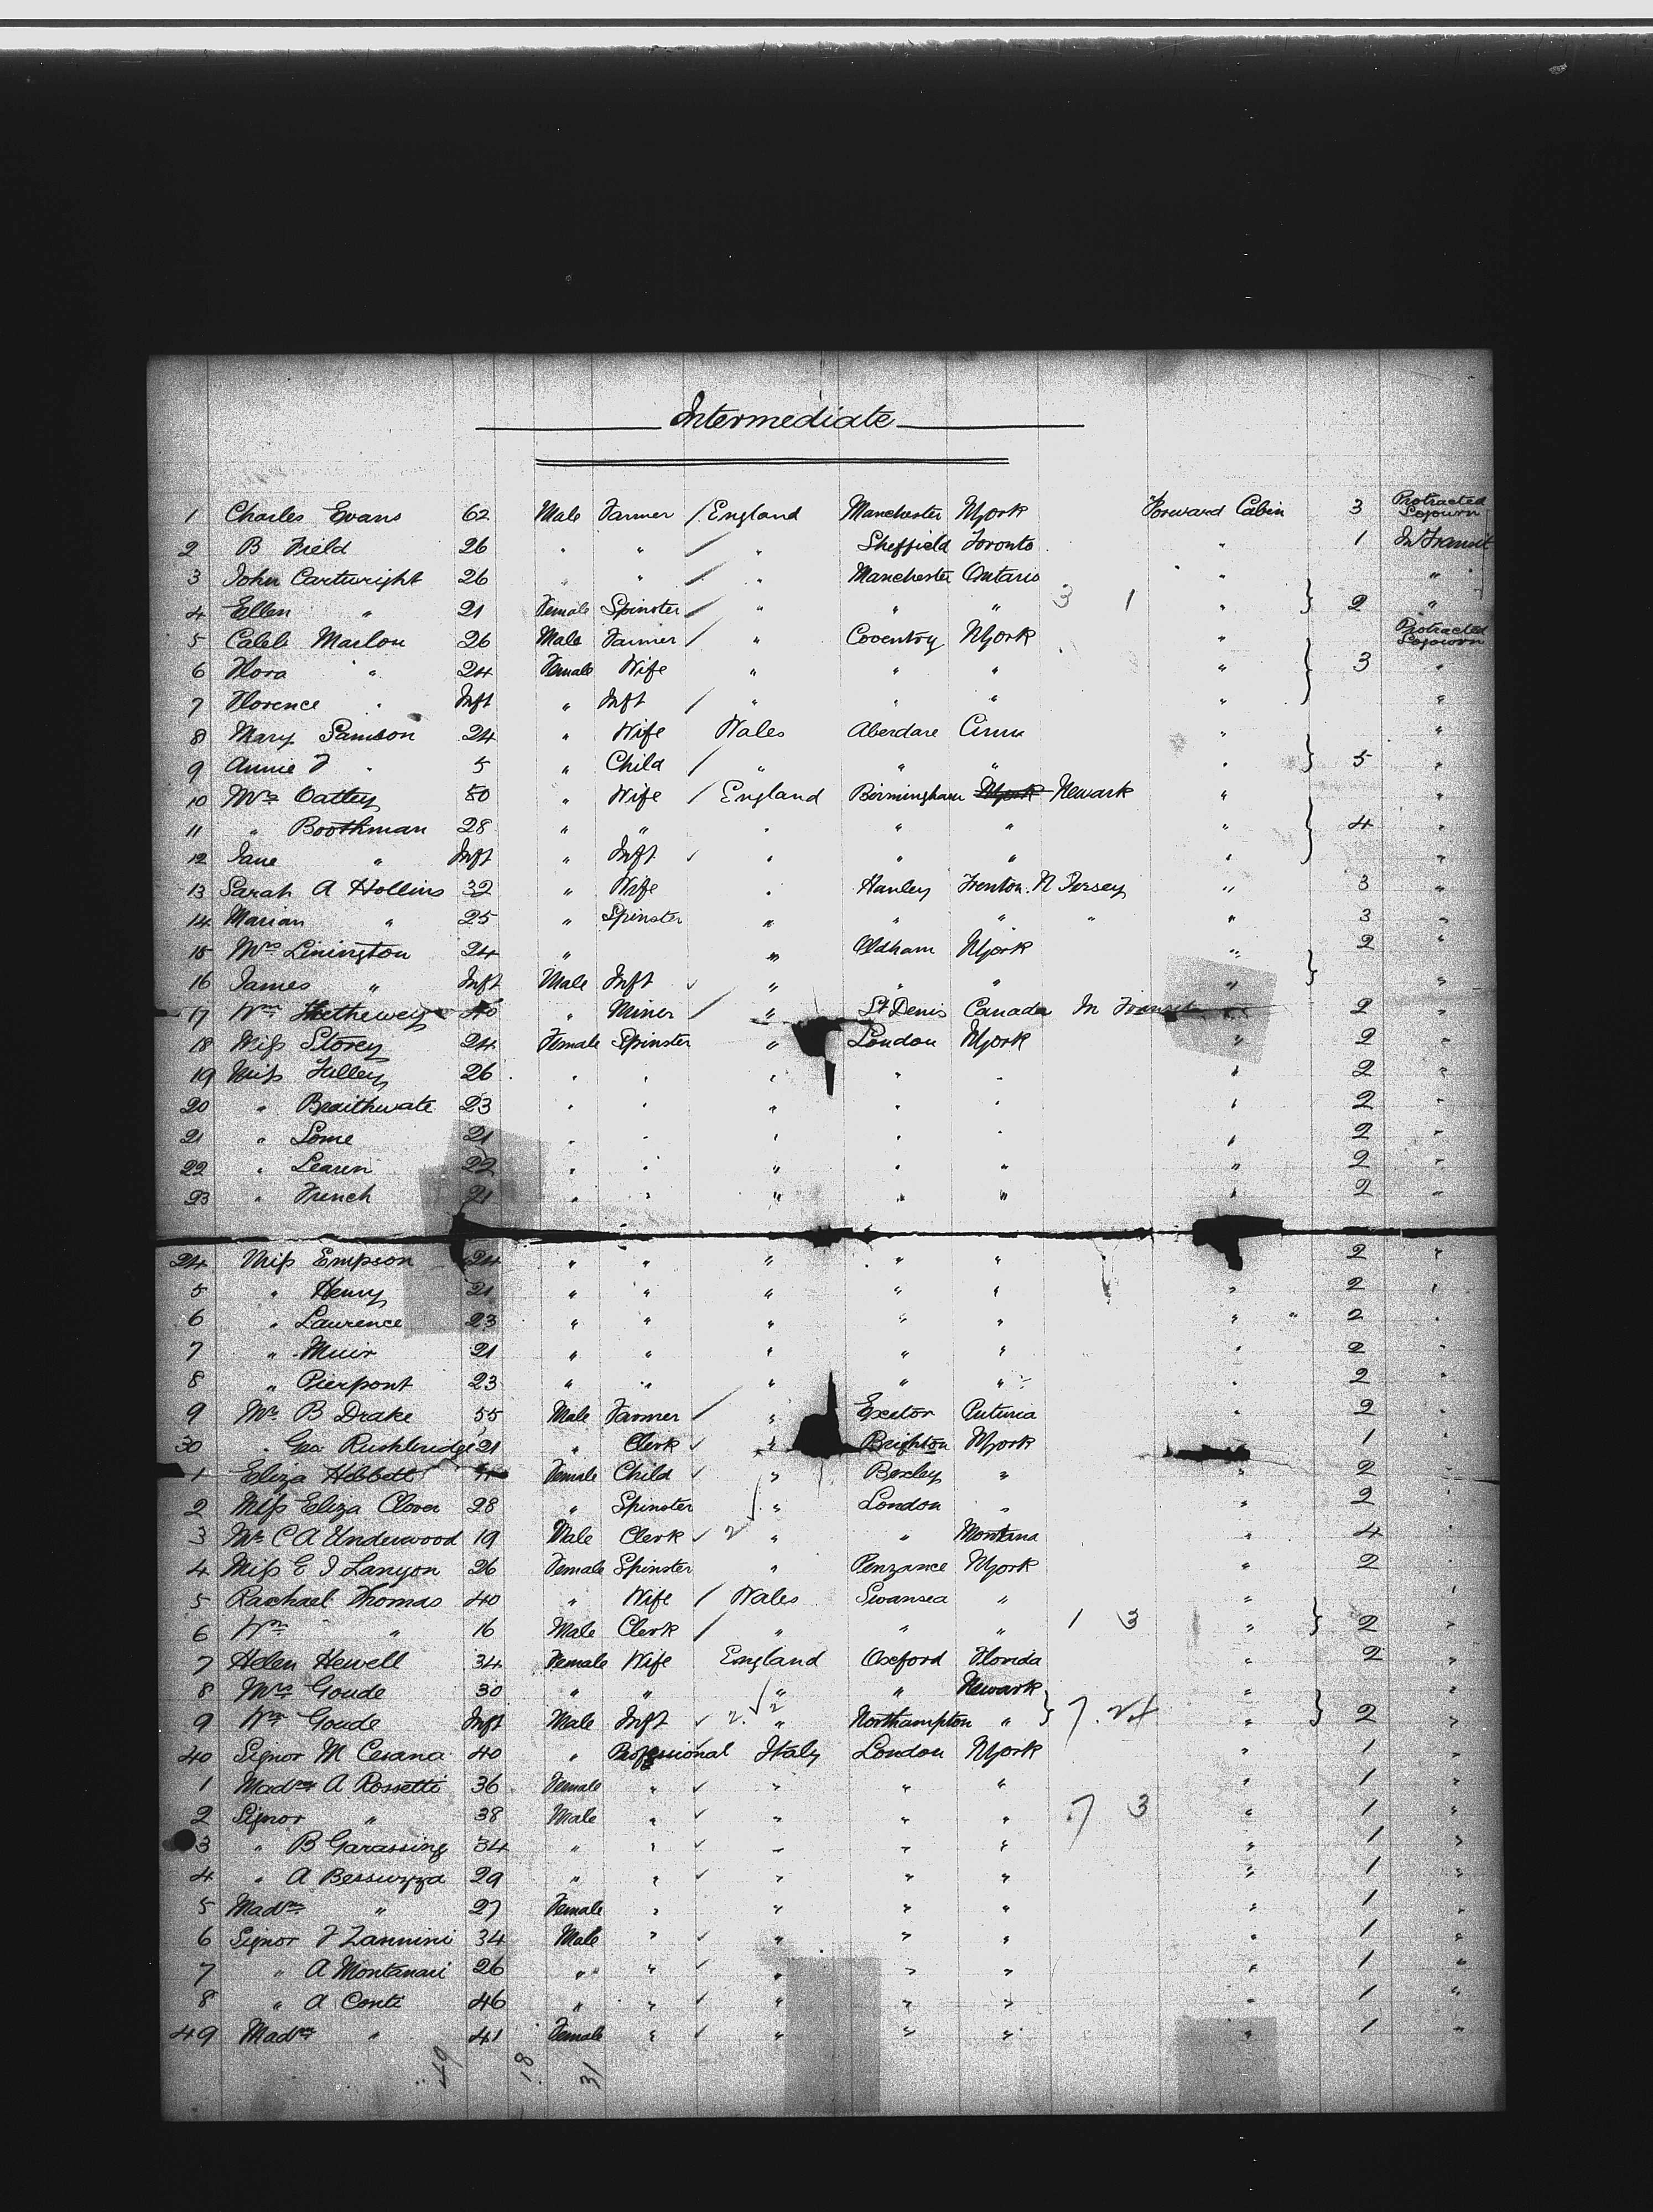 Intermediate
1 Charles Evans 62 Male Farmer / England Manchester NYork Forward Cabin 3 Protracted Sojourn
2 B Field 26 " " / " Sheffield Toronto " 1 In Transit
3 John Cartwright 26 " " / " Manchester Ontario " "
4 Ellen " 21 Female Spinster / " " " 3 1 " } 2 "
5 Caleb Marlow 26 Male Farmer / " Coventry NYork " Protracted Sojourn
6 Flora " 24 Female Wife " " " " } 3 "
7 Florence " Inft " Inft / " " " " "
8 Mary Samson 24 " Wife Wales Aberdare Cinn " "
9 Annie F " 5 " Child / " " " " } 5 "
10 Mrs Oatley 50 " Wife / England Birmingham NYork Newark " "
11 " Boothman 28 " " " " " " } 4 "
12 Jane " Inft " Inft ✓ " " " " "
13 Sarah A Hollins 32 " Wife " Hanley Trenton. N Jersey " 3 "
14 Marian " 25 " Spinster " " " " " 3 "
15 Mrs Linington 24 " " Oldham NYork " 2 "
16 James " Inft Male Inft ✓ " " " " } "
17 Wm Hetheway 40 " Miner / " St Denis Canada In Transit " 2 "
18 Miss Storey 24 Female Spinster " London NYork " 2 "
19 Miss Tilley 26 " " " " " " 2 "
20 " Braithwate 23 " " " " " " 2 "
21 " Lome 21 " " " " " " 2 "
22 " Learin 22 " " " " " " 2 "
23 " French 21 " " " " " " 2 "
24 Miss Empson 24 " " " " " 2 "
5 " Henry 21 " " " " " " 2 "
6 " Laurence 23 " " " " " " " 2 "
7 " Muir 21 " " " " " " 2 "
8 " Pierpont 23 " " " " " " 2 "
9 Mr B Drake 55 Male Farmer / " Exetor " 2 "
30 " Geo Rushbridge 21 " Clerk ✓ " Brighton NYork 1 "
1 Eliza Hebbett Female Child ✓ " Bexley " " 2 "
2 Miss Eliza Clover 28 " Spinster ✓ " London " " 2 "
3 Mr C A Underwood 19 Male Clerk ✓ 2 " " Montana " 4 "
4 Miss E J Lanyon 26 Female Spinster " Penzance NYork " 2 "
5 Rachael Thomas 40 " Wife / Wales Swansea " " "
6 Wm " 16 Male Clerk / " " " 1 3 " } 2 "
7 Helen Hewell 34 Female Wife England Oxford Florida " 2 "
8 Mrs Goude 30 " " ✓ " " Newark " "
9 Wm Goude Inft Male Inft ✓ 2. 2 " Northampton " } 7. 24 " } 2 "
40 Signor M Cesana 40 " Professional Italy London NYork " 1 "
1 Madme A Rossetti 36 Female " ✓ " " " " 1 "
2 Signor " 38 Male " ✓ " " " 7 3 " 1 "
3 " B Garassing 34 " " ✓ " " " " 1 "
4 " A Bessuzza 29 " " ✓ " " " " 1 "
5 Madme " 27 Female " " " " " 1 "
6 Signor F Zannini 34 Male " ✓ " " " " 1 "
7 " A Montanari 26 " " ✓ " " " " 1 "
8 " A Conti 46 " " ✓ " " " " 1 "
49 Madme " 41 Female " ✓ " " " " 1 "
49 18 31